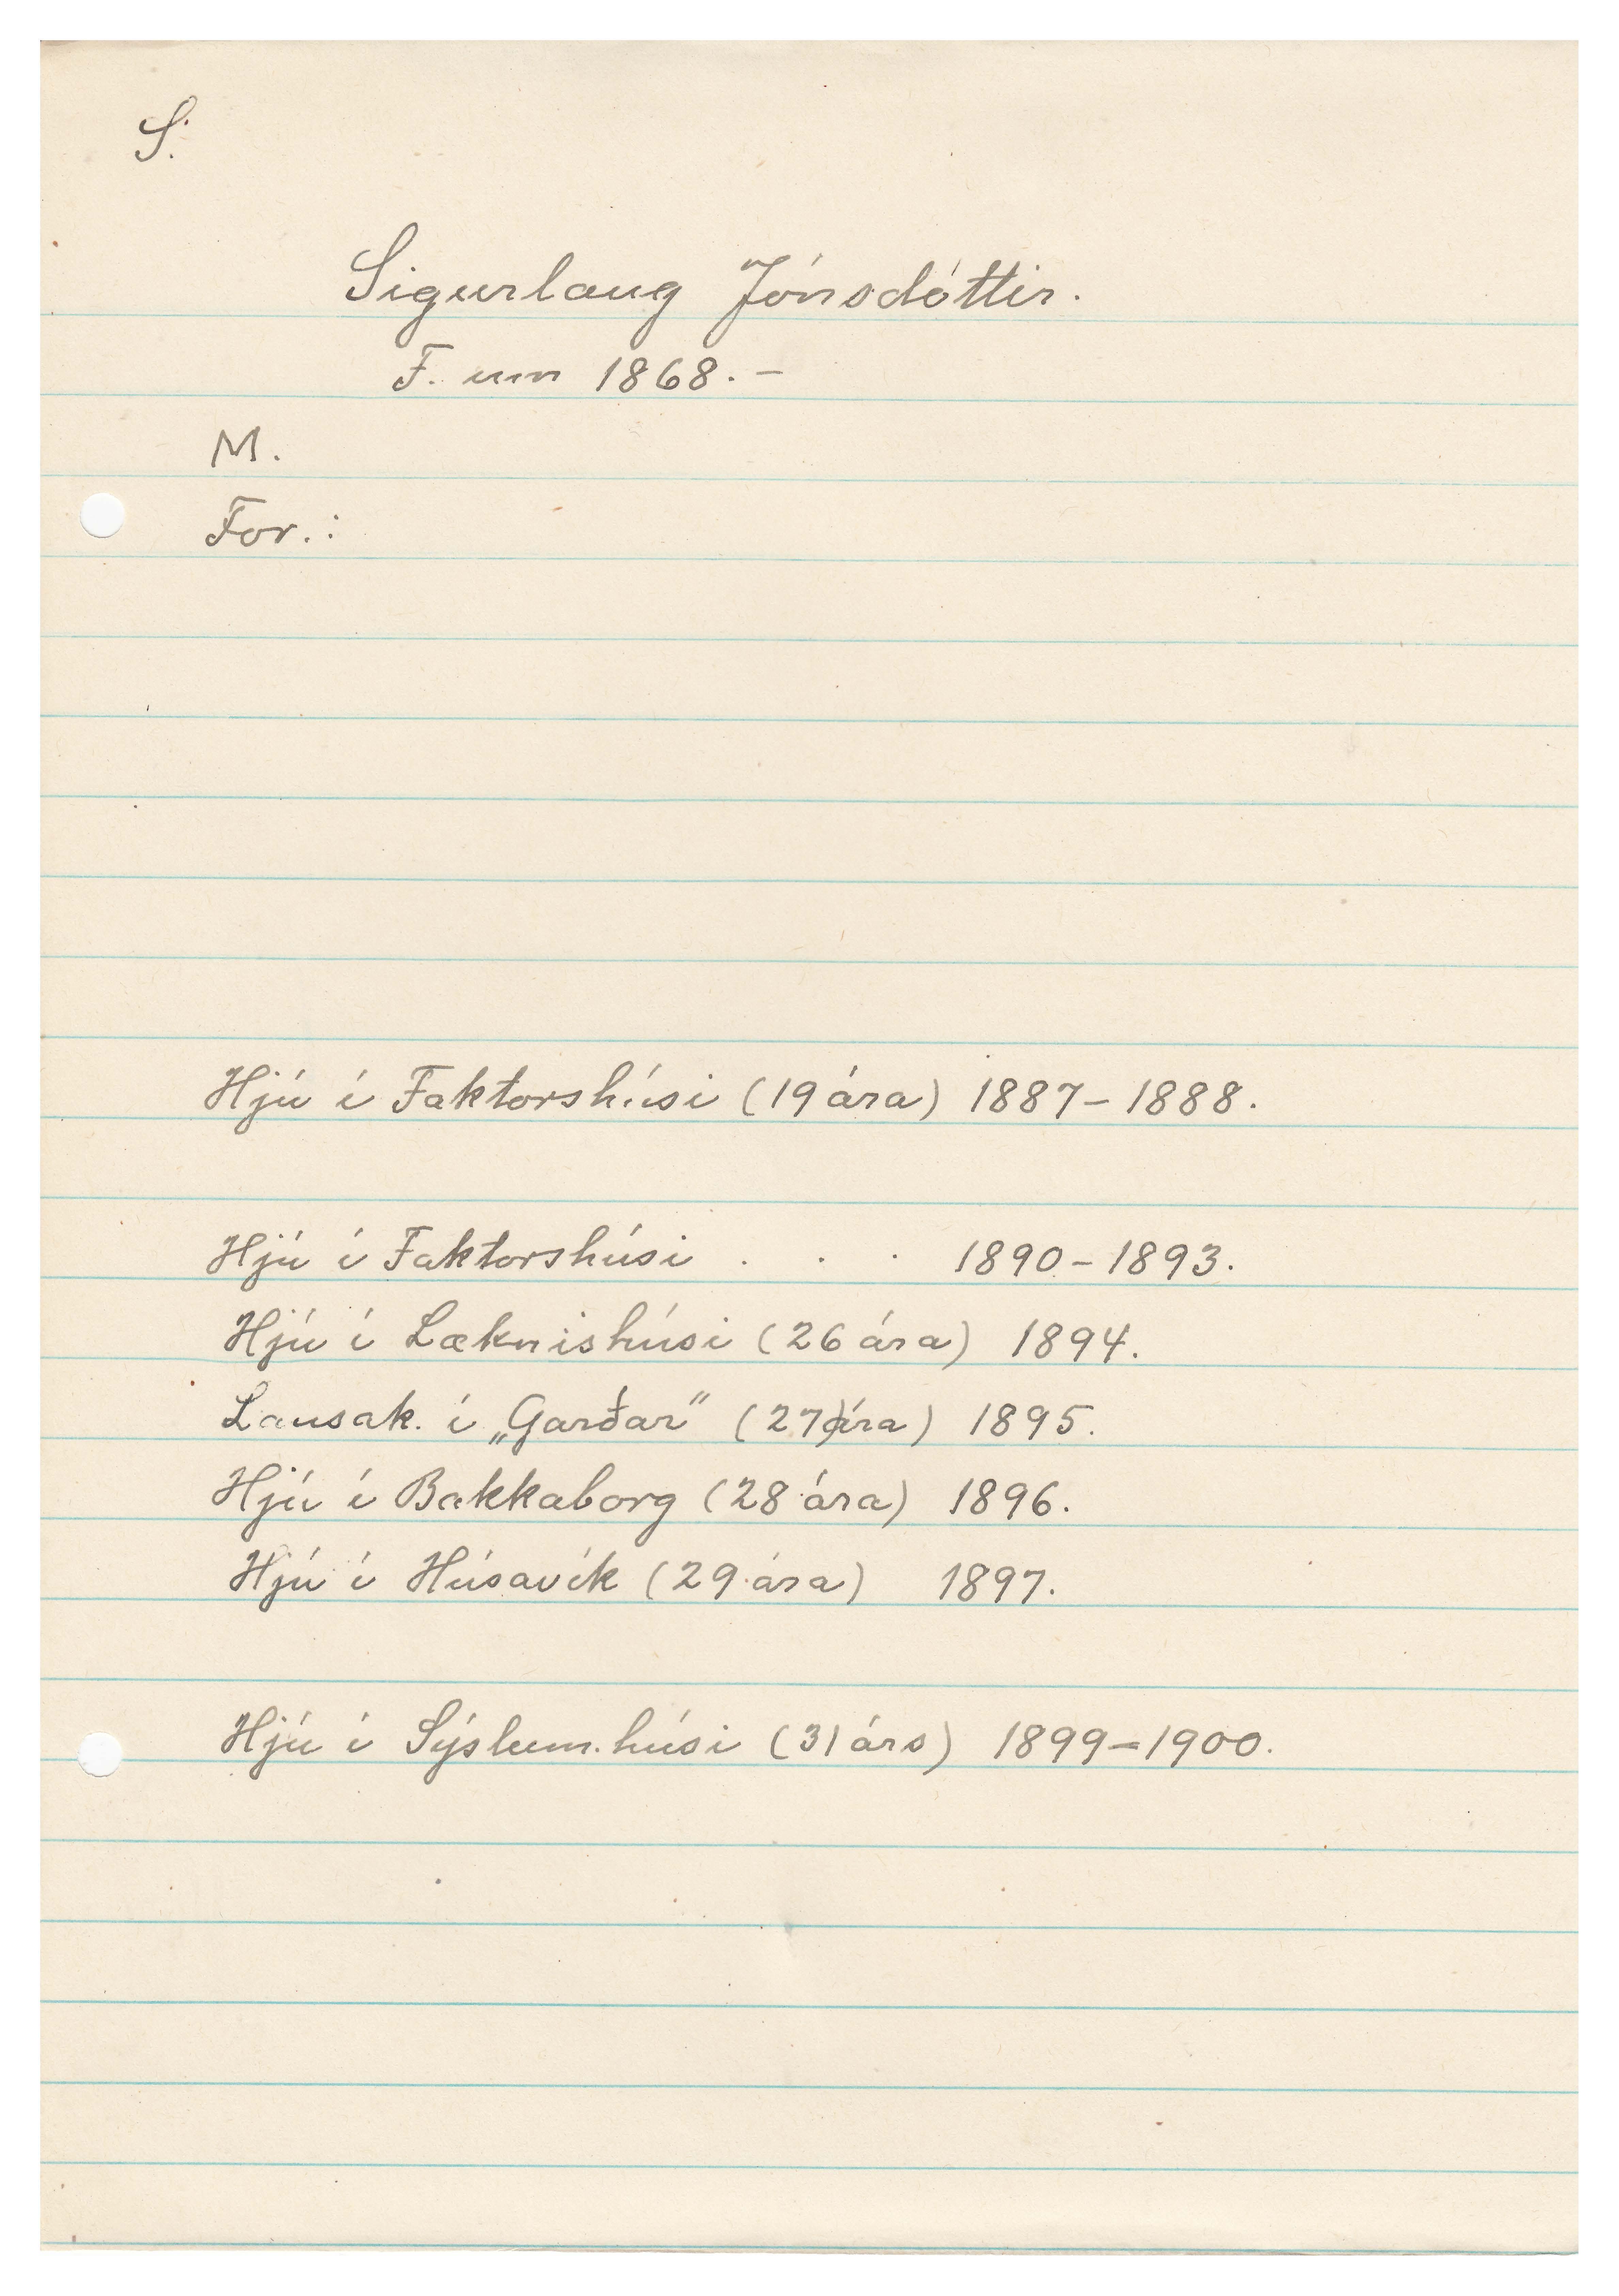 S.
Sigurlaug Jónsdóttir.
F. um 1868. –
M.
For.:
Hjú í Faktorshúsi (19 ára) 1887 – 1888.
Hjú í Faktorshúsi . . . 1890 – 1893.
Hjú í Læknishúsi (26 ára) 1894.
Lausak. í „Garðar" (27 ára) 1895.
Hjú í Bakkaborg (28 ára) 1896.
Hjú í Húsavík (29 ára) 1897.
Hjú í Sýslum.húsi (31 árs) 1899 – 1900.